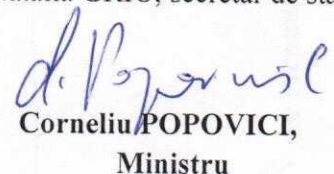 secretar de sta
Corneliu POPOVICI,
Ministru